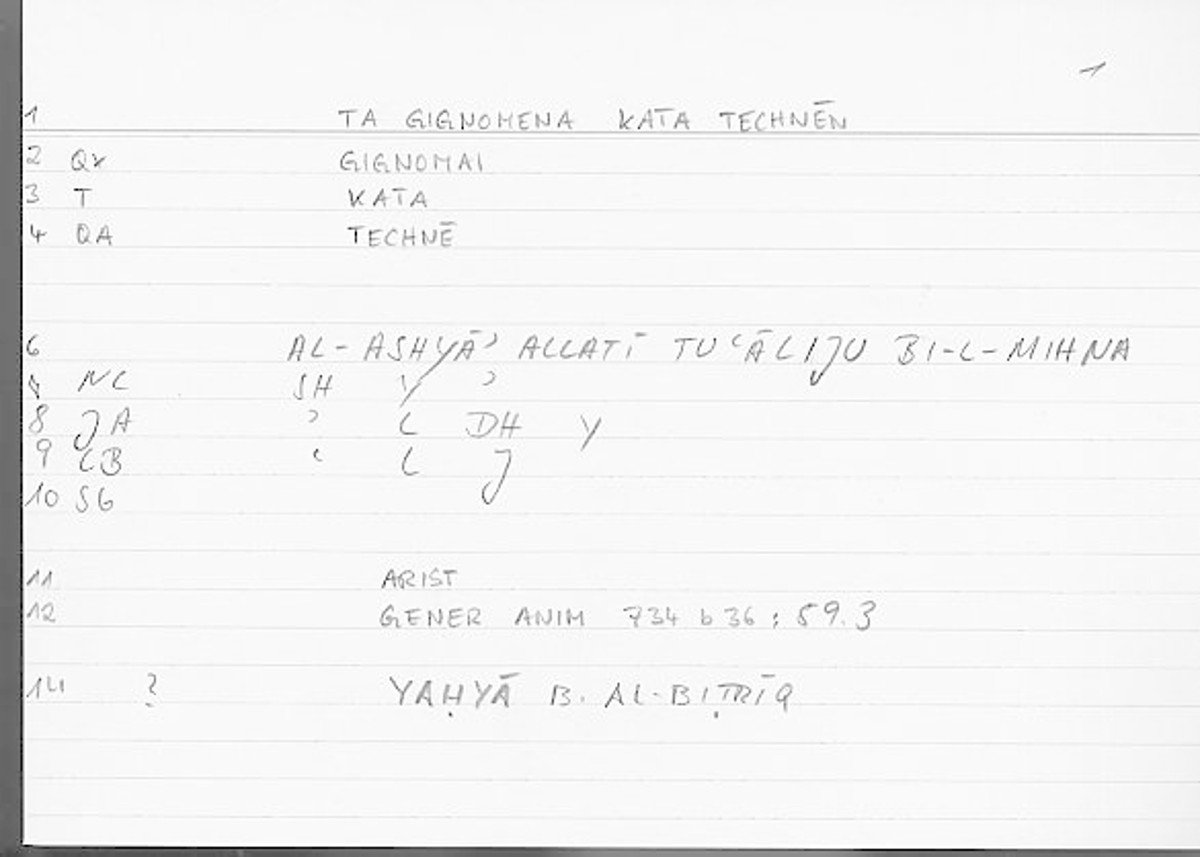 1
1 TA GIGNOMENA KATA TECHNĒN
2 QX GIGNOMAI
3 T KATA
4 QA TECHNĒ
6 AL-ASHYĀʾ ALLATĪ TUʿĀLIJU BI-L-MIHNA
NC SH Y ʾ
8 JA ʾ L DH Y
9 CB ʿ L J
10 SG
11 ARIST
12 GENER ANIM 734 b 36 ; 59.3
14 ? YAḤYĀ B. AL-BIṬRĪQ